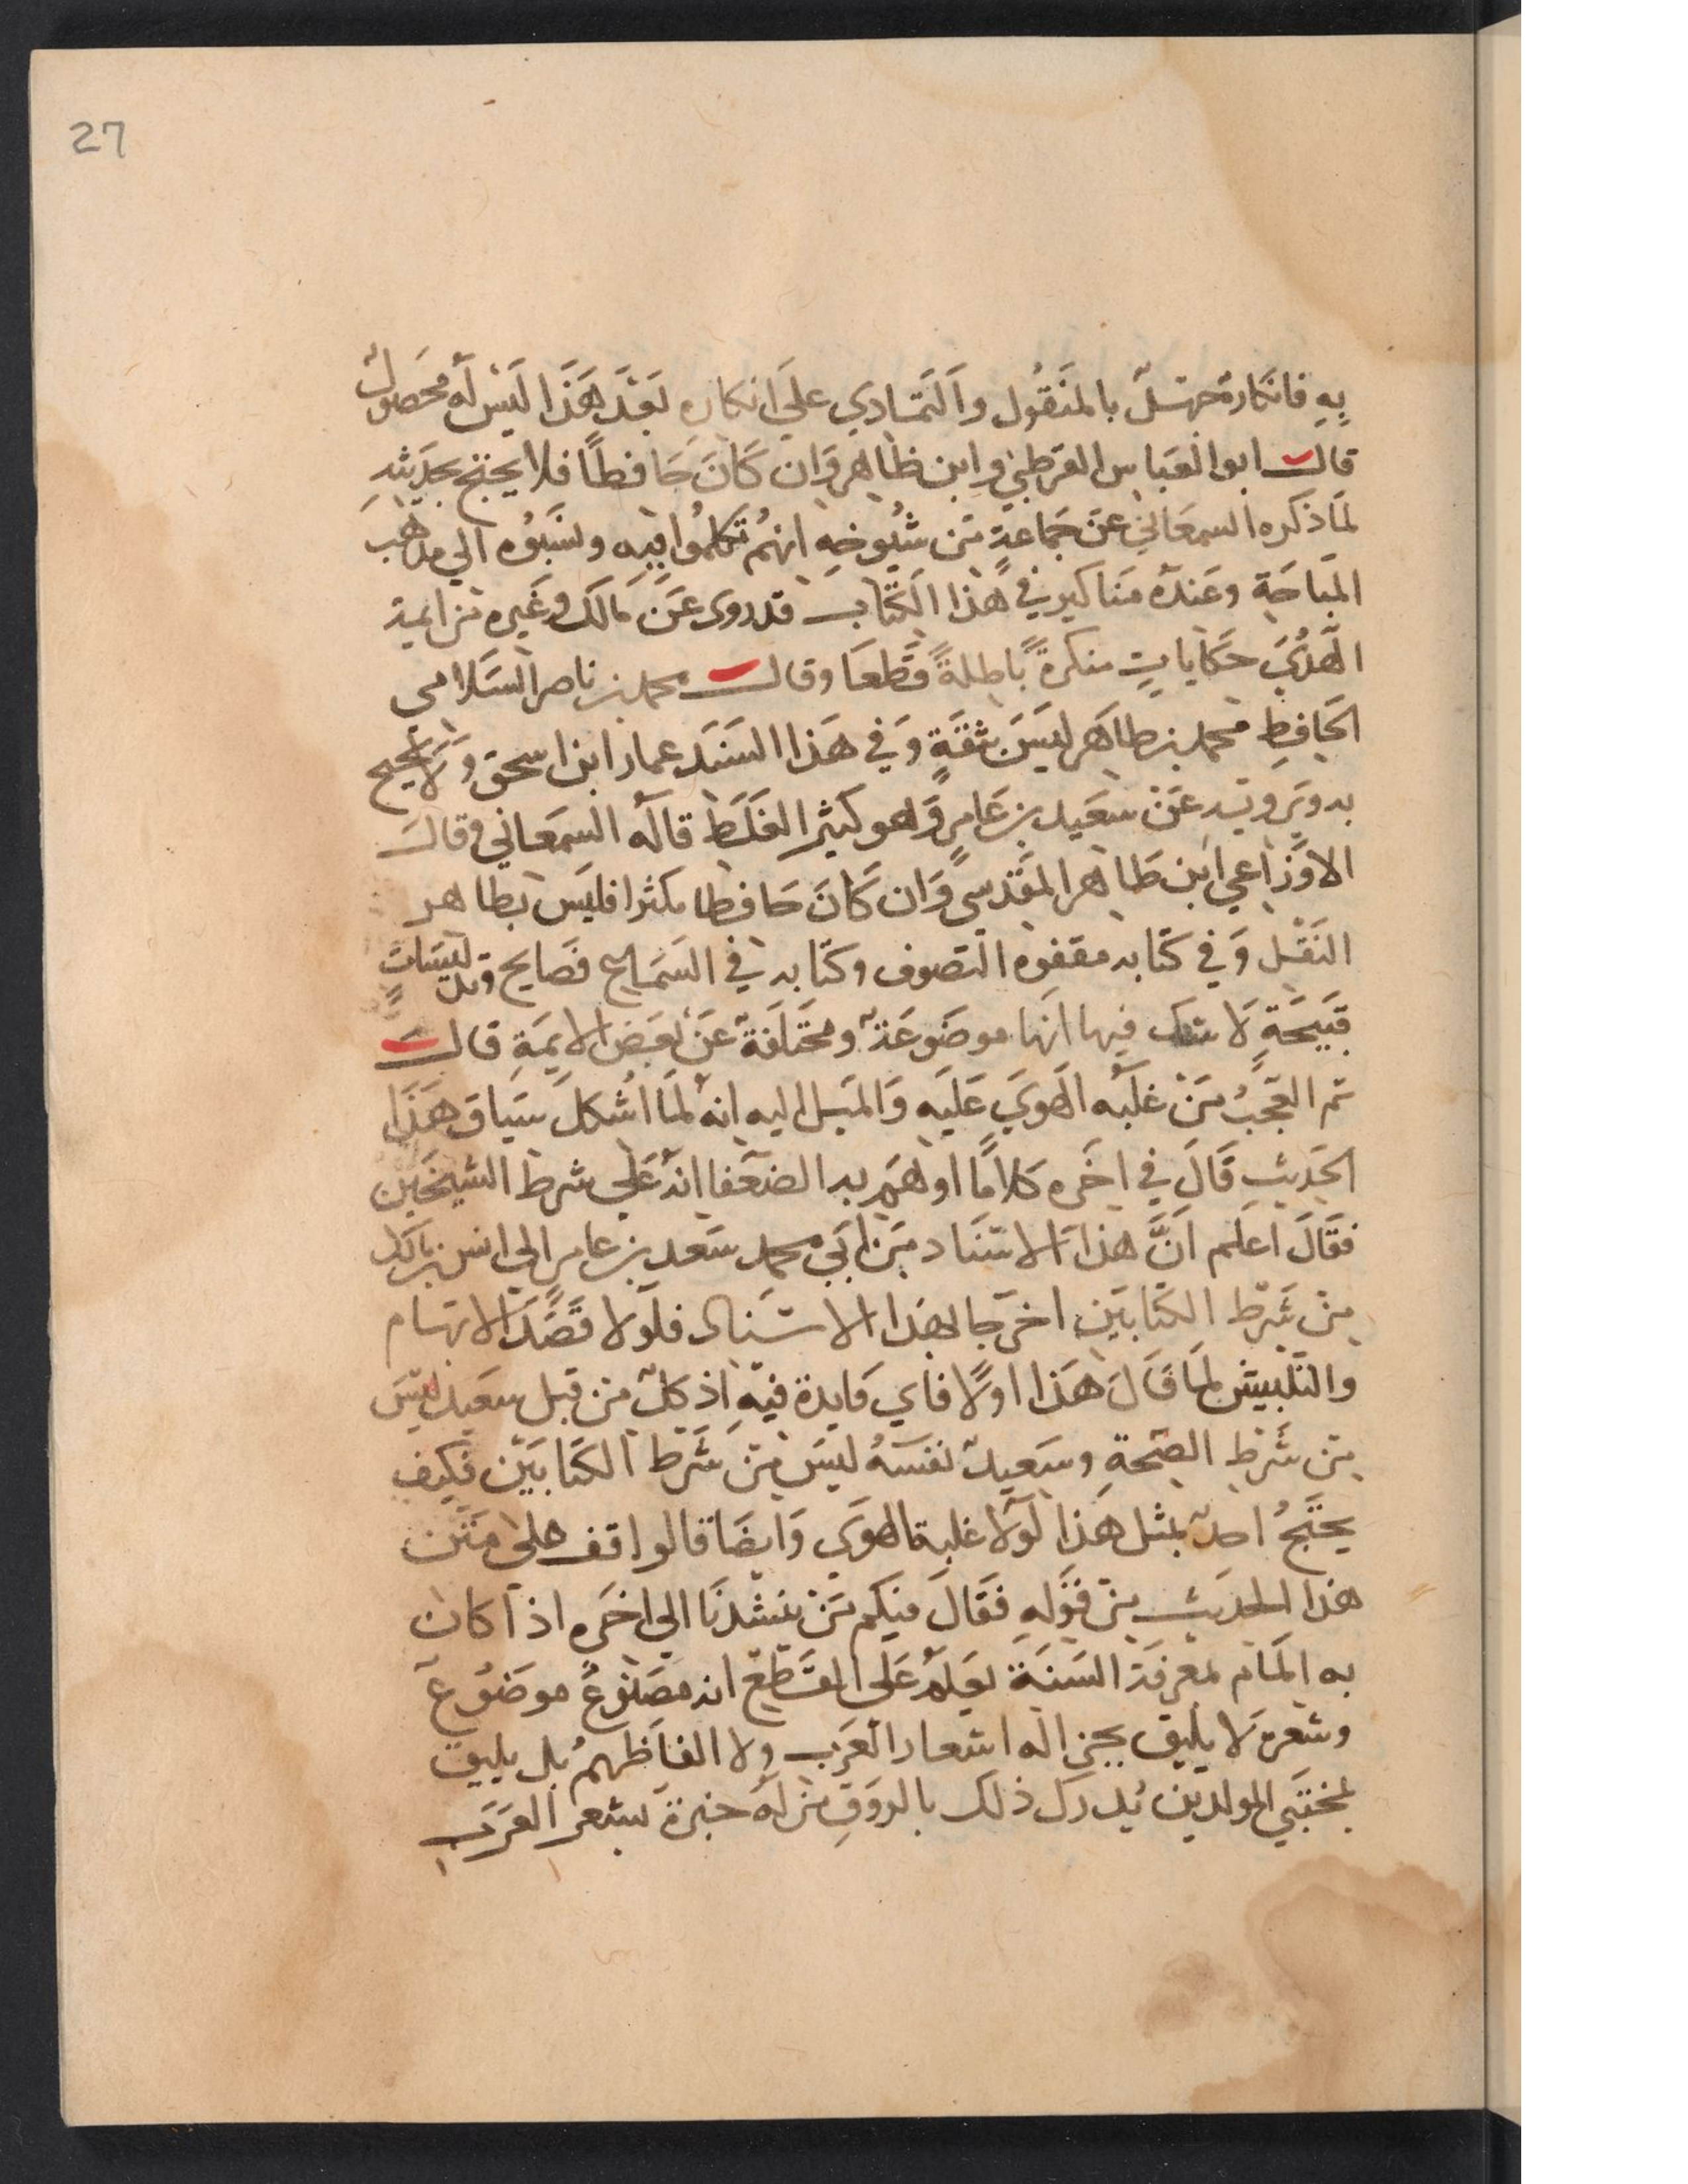 27
بِهِ فانكاره جهل بالمنقُول والتمادي علي انكاره بعد هذا ليس له محصول
قال ابو العباس القرطبي وابن طاهر وان كان حافظًا فلا يحتج بحديثه
لما ذكره السمعاني عن جماعةٍ من شيُوخهِ انهم تكلموا فيه ونسَبُوه الي مذهب
المباحة وعنده مناكير في هذا الكتاب قد روى عن مالك وغيره من ايمة
الهُدي حكاياتٍ منكرةً باطلةً قطعا وقال محمد بن ناصر السلامى
الحافِظِ محمد بن طاهر ليسَ بثقةٍ وفي هذا السند عمار ابن اسحق ولا يحتج
به ويرويه عن سعيد بن عامرٍ وهو كثير الغلط قاله السمعاني وقال
الاوزاعي ابن طاهر المقدسي وان كان حافظا مكثرا فليس بطاهر
النقل وفي كتابه صفوه التصوف وكتابه في السماع فضايح وتلبيسات
قبيحةٍ لا شك فيها انها موضوعة ومختلقة عن بعض الايمةِ قال
ثم العجبُ من غلبه الهوي عليه والميل اليه انه لما اشكل سياق هذا
الحديث قال في اخره كلامًا اوهم به الضعفا انه علي شرط الشيخين
فقال اعلم انَّ هذا الاسناد من ابي محمد سعد بن عامر الي انس بن مالك
من شرط الكتابين اخرجا بهذا الاسناد فلولا قصد الايهام
والتلبيس لما قال هذا اولًا فاي فايدة فيهِ اذ كلٌ من قبل سعيد ليس
من شرط الصحةِ وسعيدٌ نفسهُ ليس من شرط الكتابين فكيف
يحتج احدٌ بمثل هذا لولا غلبة الهوي وايضا قالوا قف علي متن
هذا الحديث من قولهِ فقال فيكم من ينشدنا الي اخره اذا كان
به المام لمعرفة السنة يعلم علي القطع انه مصنُوعٌ موضوعٌ
وشعره لا يليق بجزاله اشعار العرب ولا الفاظهم بل يليق
بمخنثي المولدين يُدرك ذلك بالذوقِ من له خبرة بشعر العرب